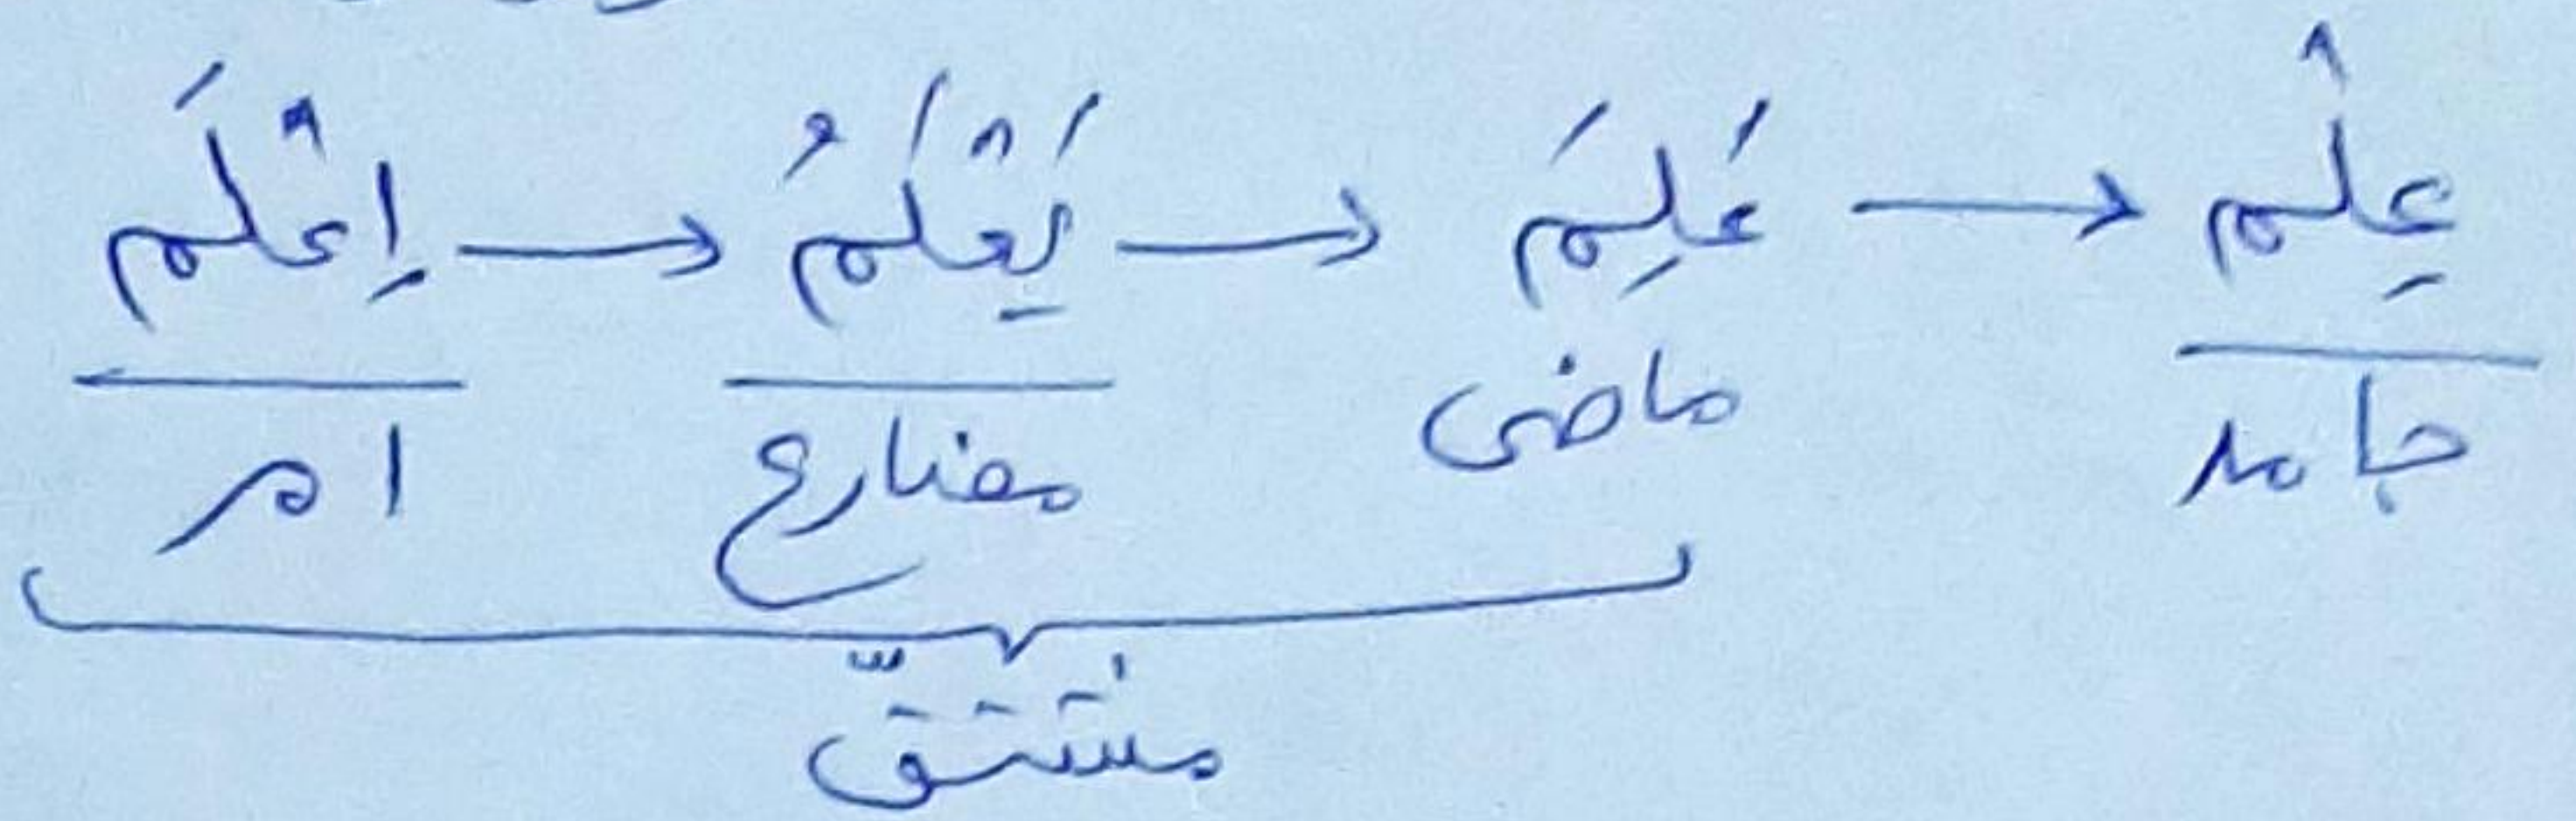 عِلْم → عَلِمَ → يَعْلَمُ → اِعْلَم
جامد ماضی مضارع امر
مشتقّ